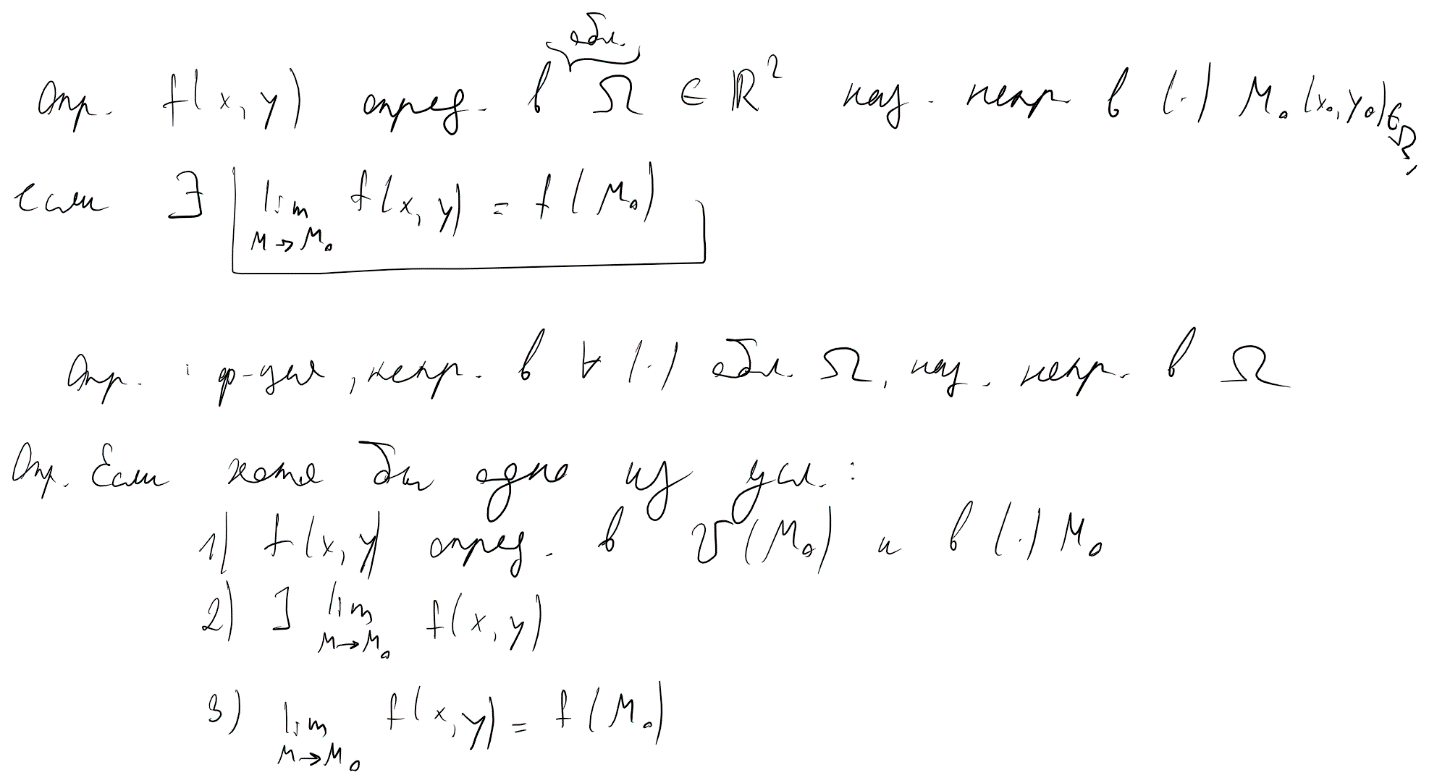 обл.
Опр. f(x, y) опред. в Ω ∈ ℝ² наз. непр в (·) M₀(x₀, y₀)∈Ω,
если ∃ lim f(x, y) = f(M₀)
M→M₀
Опр. : ф-ция, непр. в ∀ (·) обл. Ω, наз. непр. в Ω
Опр. Если хотя бы одно из усл. :
1) f(x, y) опред. в U(M₀) и в (·) M₀
2) ∃ lim f(x, y)
M→M₀
3) lim f(x, y) = f(M₀)
M→M₀